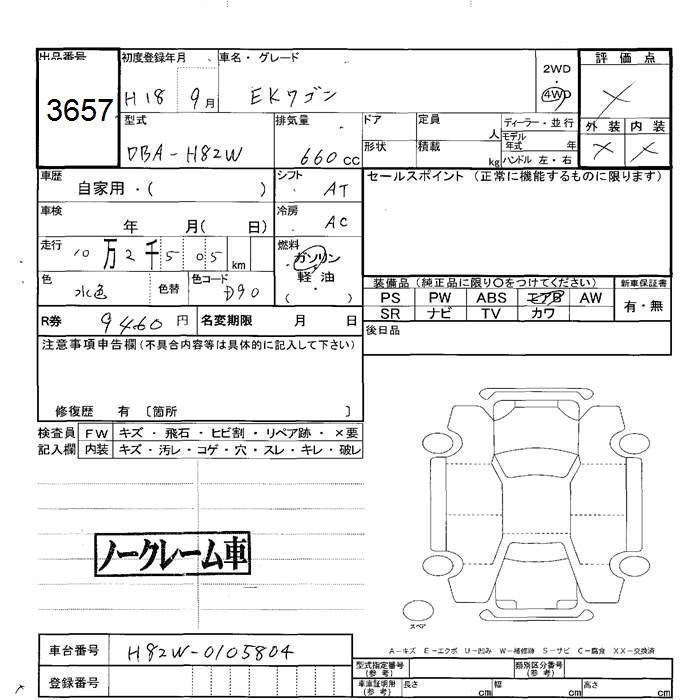 出品番号 初度登録年月 車名・グレード 2WD 評価点
3657 H18 9月 EKワゴン ・ 4WD ×
型式 排気量 ドア 定員 人 ディーラー・並行 外装 内装
DBA-H82W 660cc 形状 積載 kg モデル年式 年 × ×
ハンドル 左・右
車歴 自家用・( ) シフト AT セールスポイント (正常に機能するものに限ります)
車検 年 月( 日) 冷房 AC
走行 10万2千505km 燃料 ガソリン
軽油
・( )
色 水色 色替 色コード D90
装備品(純正品に限り○をつけてください) 新車保証書
PS PW ABS エアB AW 有・無
SR ナビ TV カワ
R券 9460円 名変期限 月 日
後日品
注意事項申告欄(不具合内容等は具体的に記入して下さい)
修復歴 有 〔箇所 〕
検査員 FW キズ・飛石・ヒビ割・リペア跡・×要
記入欄 内装 キズ・汚レ・コゲ・穴・スレ・キレ・破レ
ノークレーム車
スペア
A-キズ E-エクボ U-凹み W-補修跡 S-サビ C-腐食 XX-交換済
車台番号 H82W-0105804
登録番号
型式指定番号(参考) 類別区分番号(参考)
車庫証明用(参考) 長さ cm 幅 cm 高さ cm